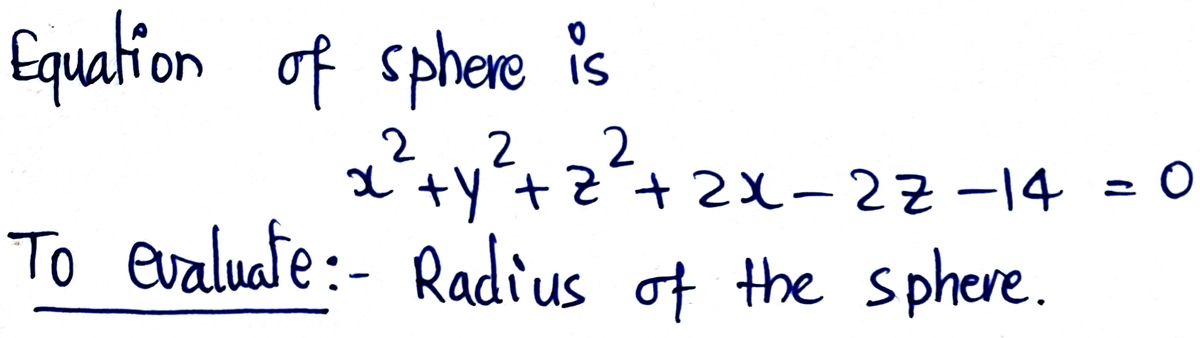 Equation of sphere is
x²+y²+z²+2x-2z-14 = 0
To evaluate:- Radius of the sphere.